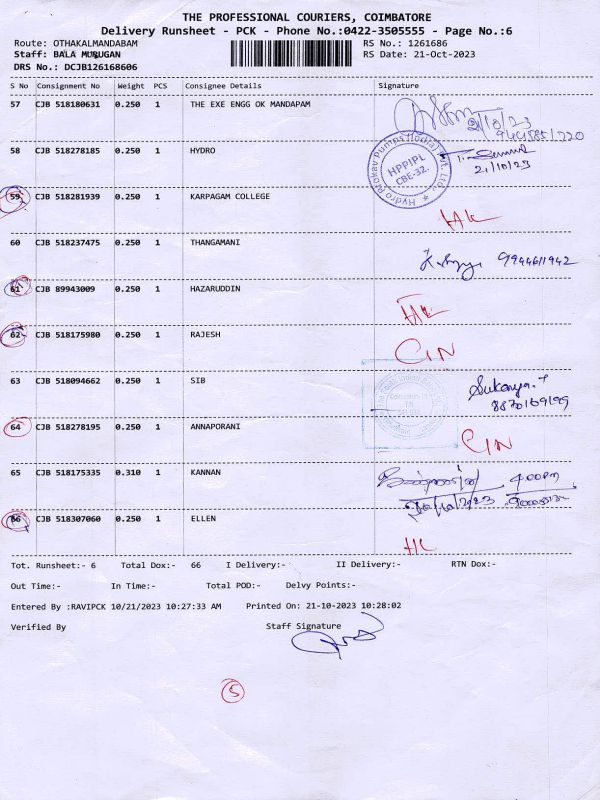 THE PROFESSIONAL COURIERS, COIMBATORE
Delivery Runsheet - PCK - Phone No.:0422-3505555 - Page No.:6
Route: OTHAKALMANDABAM RS No.: 1261686
Staff: BALA MURUGAN RS Date: 21-Oct-2023
DRS No.: DCJB126168606
S No Consignment No Weight PCS Consignee Details Signature
57 CJB 518180631 0.250 1 THE EXE ENGG OK MANDAPAM
21/10/23
58 CJB 518278185 0.250 1 HYDRO
Hydro Prokav Pumps (India) Pvt. Ltd.,
HPPIPL
CBE-32.
21/10/23
59 CJB 518281939 0.250 1 KARPAGAM COLLEGE
60 CJB 518237475 0.250 1 THANGAMANI
9944611942
61 CJB 89943009 0.250 1 HAZARUDDIN
62 CJB 518175980 0.250 1 RAJESH
CIN
63 CJB 518094662 0.250 1 SIB
Sukanya. T
8870169199
64 CJB 518278195 0.250 1 ANNAPORANI
CIN
65 CJB 518175335 0.310 1 KANNAN
66 CJB 518307060 0.250 1 ELLEN
Tot. Runsheet:- 6 Total Dox:- 66 I Delivery:- II Delivery:- RTN Dox:-
Out Time:- In Time:- Total POD:- Delvy Points:-
Entered By :RAVIPCK 10/21/2023 10:27:33 AM Printed On: 21-10-2023 10:28:02
Verified By Staff Signature
5